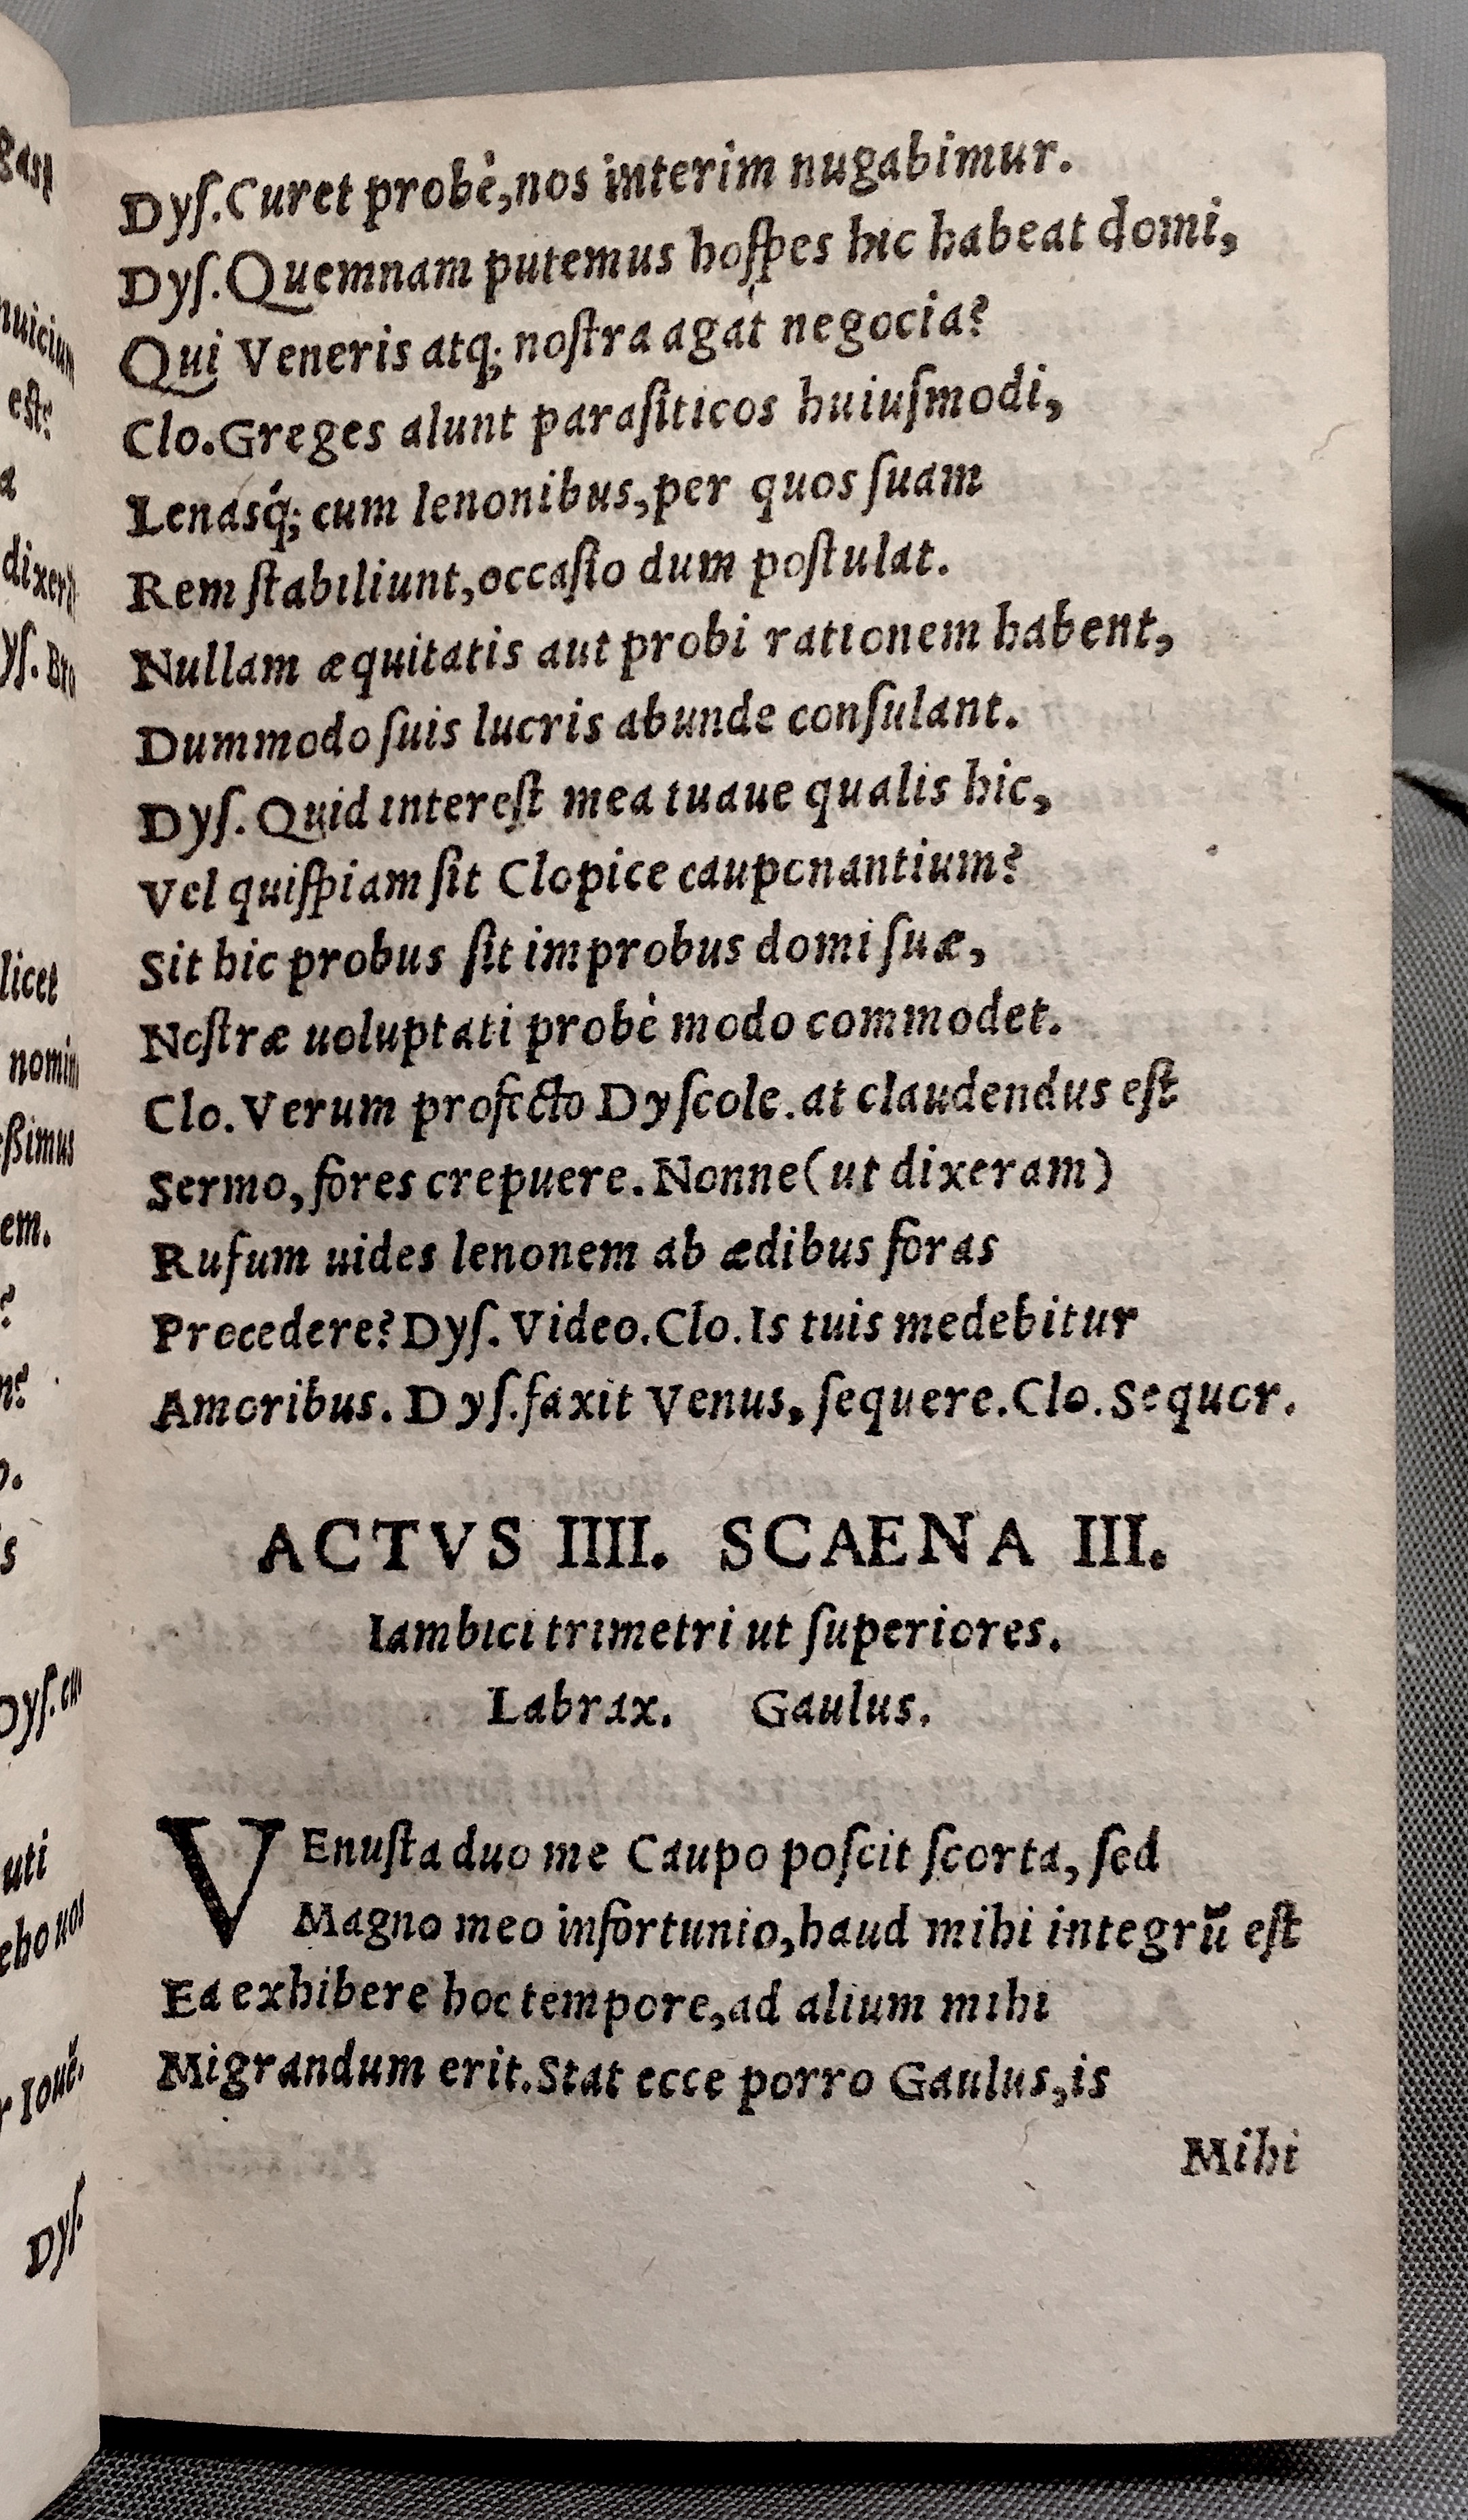 Dyſ. Curet probè, nos interim nugabimur.
Dyſ. Quemnam putemus hoſpes hic habeat domi,
Qui Veneris atq; noſtra agat negocia?
Clo. Greges alunt paraſiticos huiuſmodi,
Lenasq́; cum lenonibus, per quos ſuam
Rem ſtabiliunt, occaſio dum poſtulat.
Nullam æquitatis aut probi rationem habent,
Dummodo ſuis lucris abunde conſulant.
Dyſ. Quid intereſt mea tuaue qualis hic,
Vel quiſpiam ſit Clopice cauponantium?
Sit hic probus ſit improbus domi ſuæ,
Noſtræ uoluptati probè modo commodet.
Clo. Verum profecto Dyſcole. at claudendus eſt
Sermo, fores crepuere. Nonne (ut dixeram)
Rufum uides lenonem ab ædibus foras
Procedere? Dyſ. Video. Clo. Is tuis medebitur
Amoribus. Dyſ. faxit Venus, ſequere. Clo. Sequor.
ACTVS IIII. SCAENA III.
Iambici trimetri ut ſuperiores.
Labrax. Gaulus.
VEnuſta duo me Caupo poſcit ſcorta, ſed
Magno meo infortunio, haud mihi integrũ eſt
Ea exhibere hoc tempore, ad alium mihi
Migrandum erit. Stat ecce porro Gaulus, is
Mihi